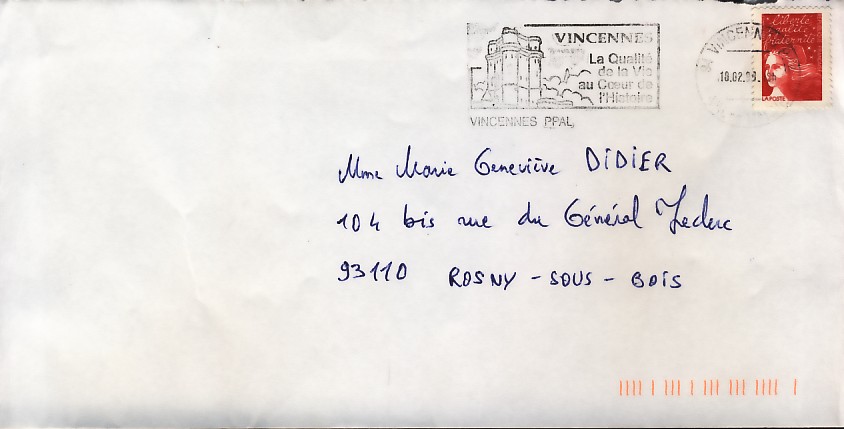 VINCENNES
La Qualité
de la Vie
au Cœur de
l'Histoire
VINCENNES PPAL
94 VINCENNES
18.02.99.
Liberté
égalité
fraternité
LA POSTE
Mme Marie Geneviève DIDIER
104 bis rue du Général Leclerc
93110 ROSNY-SOUS-BOIS